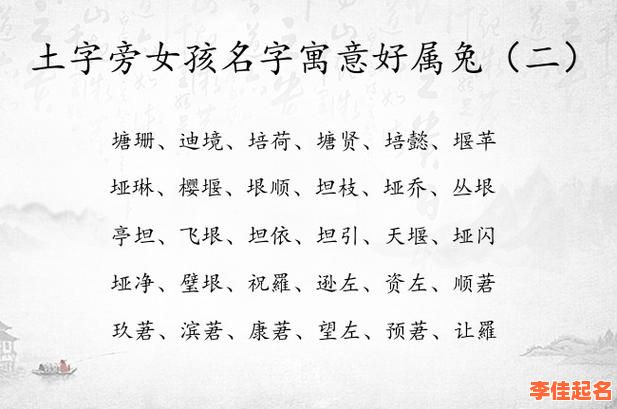 土字旁女孩名字寓意好属兔（二）
塘珊、迪境、培荷、塘贤、培懿、堰苹
垭琳、樱堰、垠顺、坦枝、垭乔、丛垠
亭坦、飞垠、坦依、坦引、天堰、垭闪
垭净、璧垠、祝羅、逊左、资左、顺莙
玖莙、滨莙、康莙、望左、预莙、让羅
李佳起名